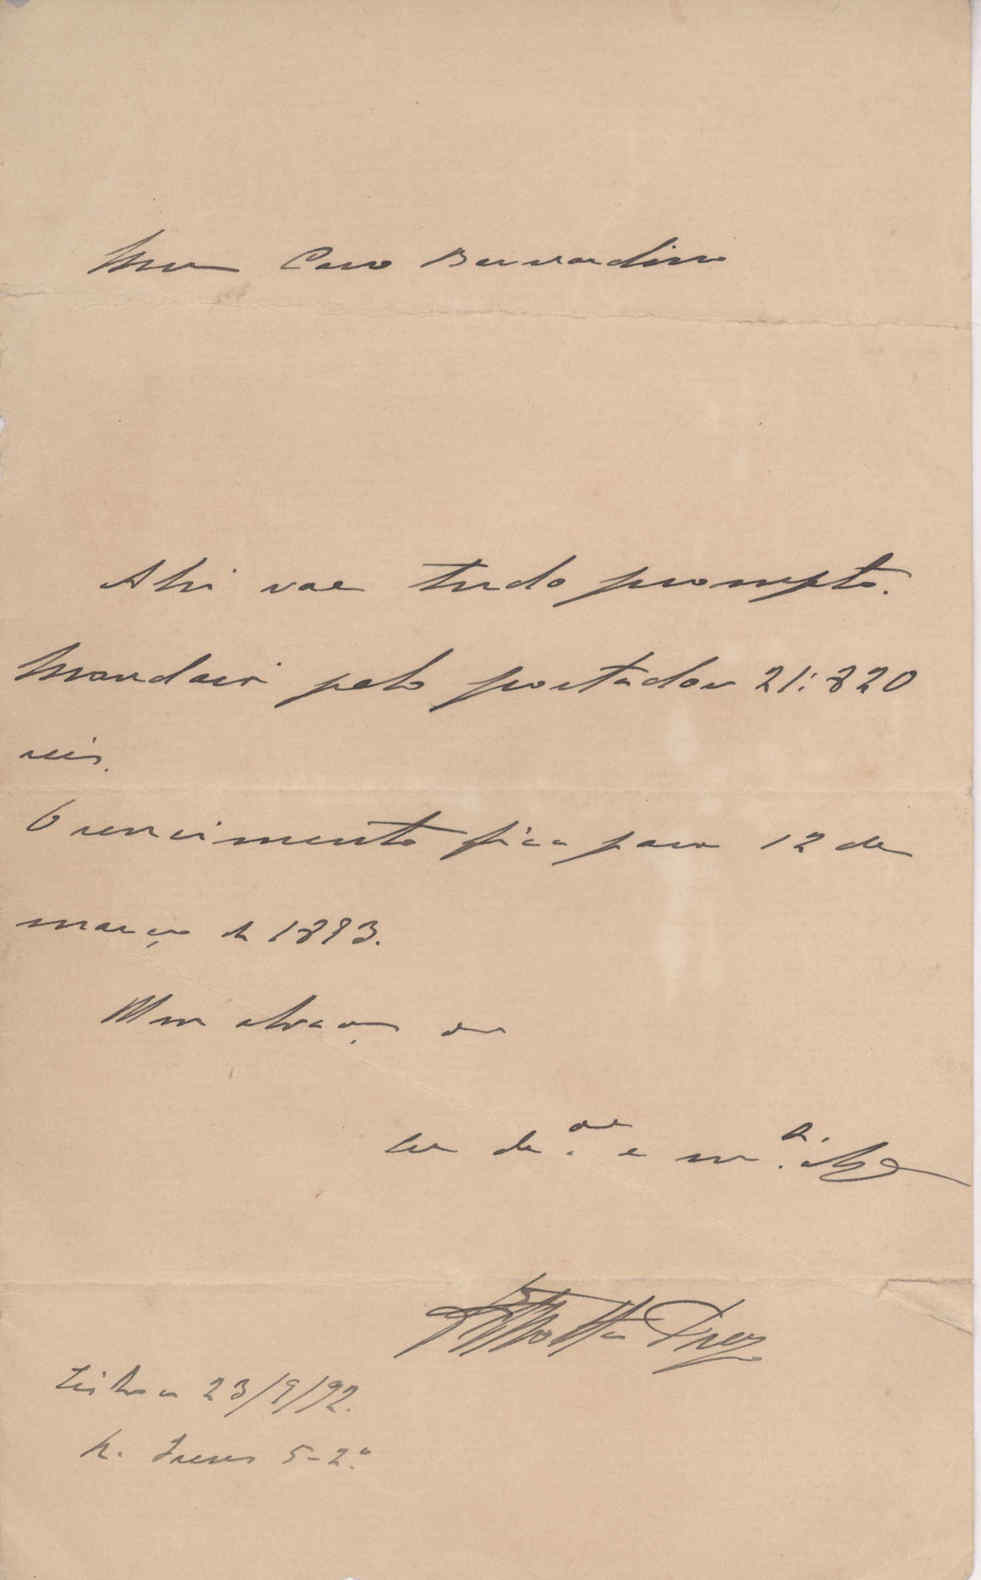 Meu Caro Bernardino
Ahi vae tudo prompto.
Mandar pelo portador 21:820
reis.
O vencimento fica para 12 de
março de 1893.
Um abraço do
de e
Motta
Lisboa 23/9/92.
R. 5-2.º